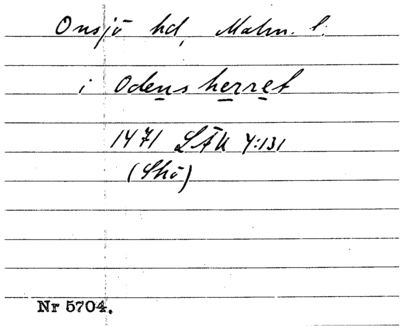 Onsjö hd, Malm. l.
i Odensherret
1471 LÄU 4:131
(Skö)
Nr 5704.